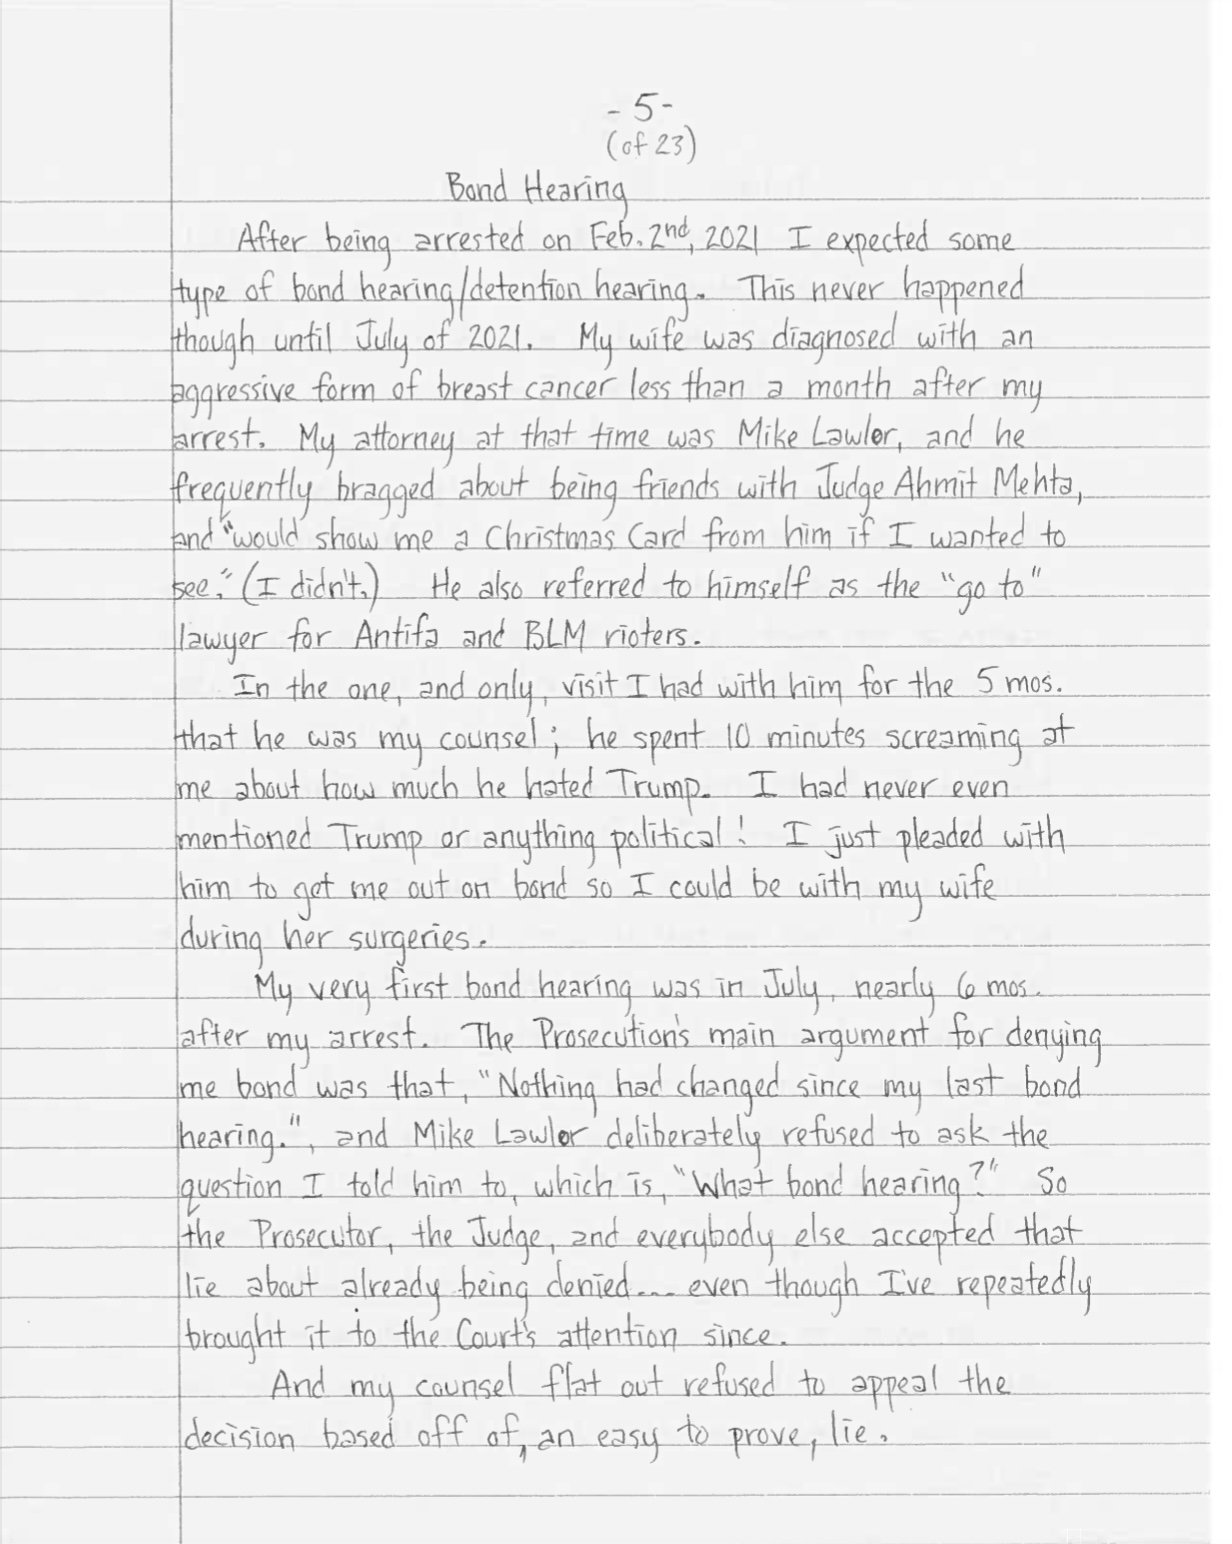 - 5 -
(of 23)
Bond Hearing
After being arrested on Feb. 2nd, 2021 I expected some
type of bond hearing/detention hearing. This never happened
though until July of 2021. My wife was diagnosed with an
aggressive form of breast cancer less than a month after my
arrest. My attorney at that time was Mike Lawlor, and he
frequently bragged about being friends with Judge Ahmit Mehta,
and "would show me a Christmas Card from him if I wanted to
see." (I didn't.) He also referred to himself as the "go to"
lawyer for Antifa and BLM rioters.
In the one, and only, visit I had with him for the 5 mos.
that he was my counsel; he spent 10 minutes screaming at
me about how much he hated Trump. I had never even
mentioned Trump or anything political! I just pleaded with
him to get me out on bond so I could be with my wife
during her surgeries.
My very first bond hearing was in July, nearly 6 mos.
after my arrest. The Prosecution's main argument for denying
me bond was that, "Nothing had changed since my last bond
hearing.", and Mike Lawlor deliberately refused to ask the
question I told him to, which is, "What bond hearing?" So
the Prosecutor, the Judge, and everybody else accepted that
lie about already being denied... even though I've repeatedly
brought it to the Court's attention since.
And my counsel flat out refused to appeal the
decision based off of, an easy to prove, lie.